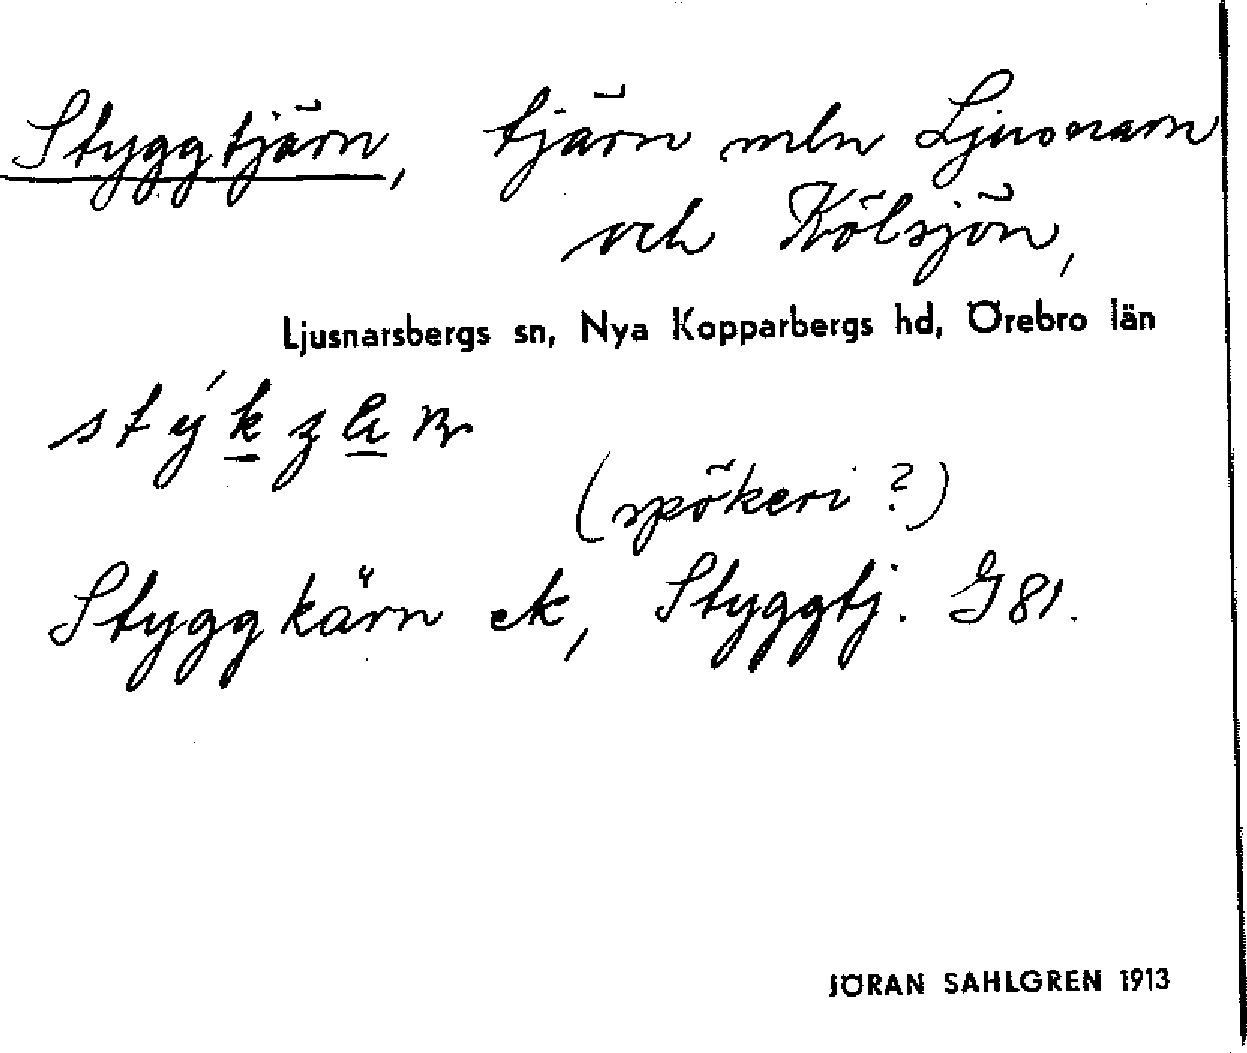 Styggtjärn, tjärn mln Ljusnarn
och Kölsjön,
Ljusnarsbergs sn, Nya Kopparbergs hd, Örebro län
(spökeri?)
Styggkärn ek, Styggtj. G 81.
JÖRAN SAHLGREN 1913